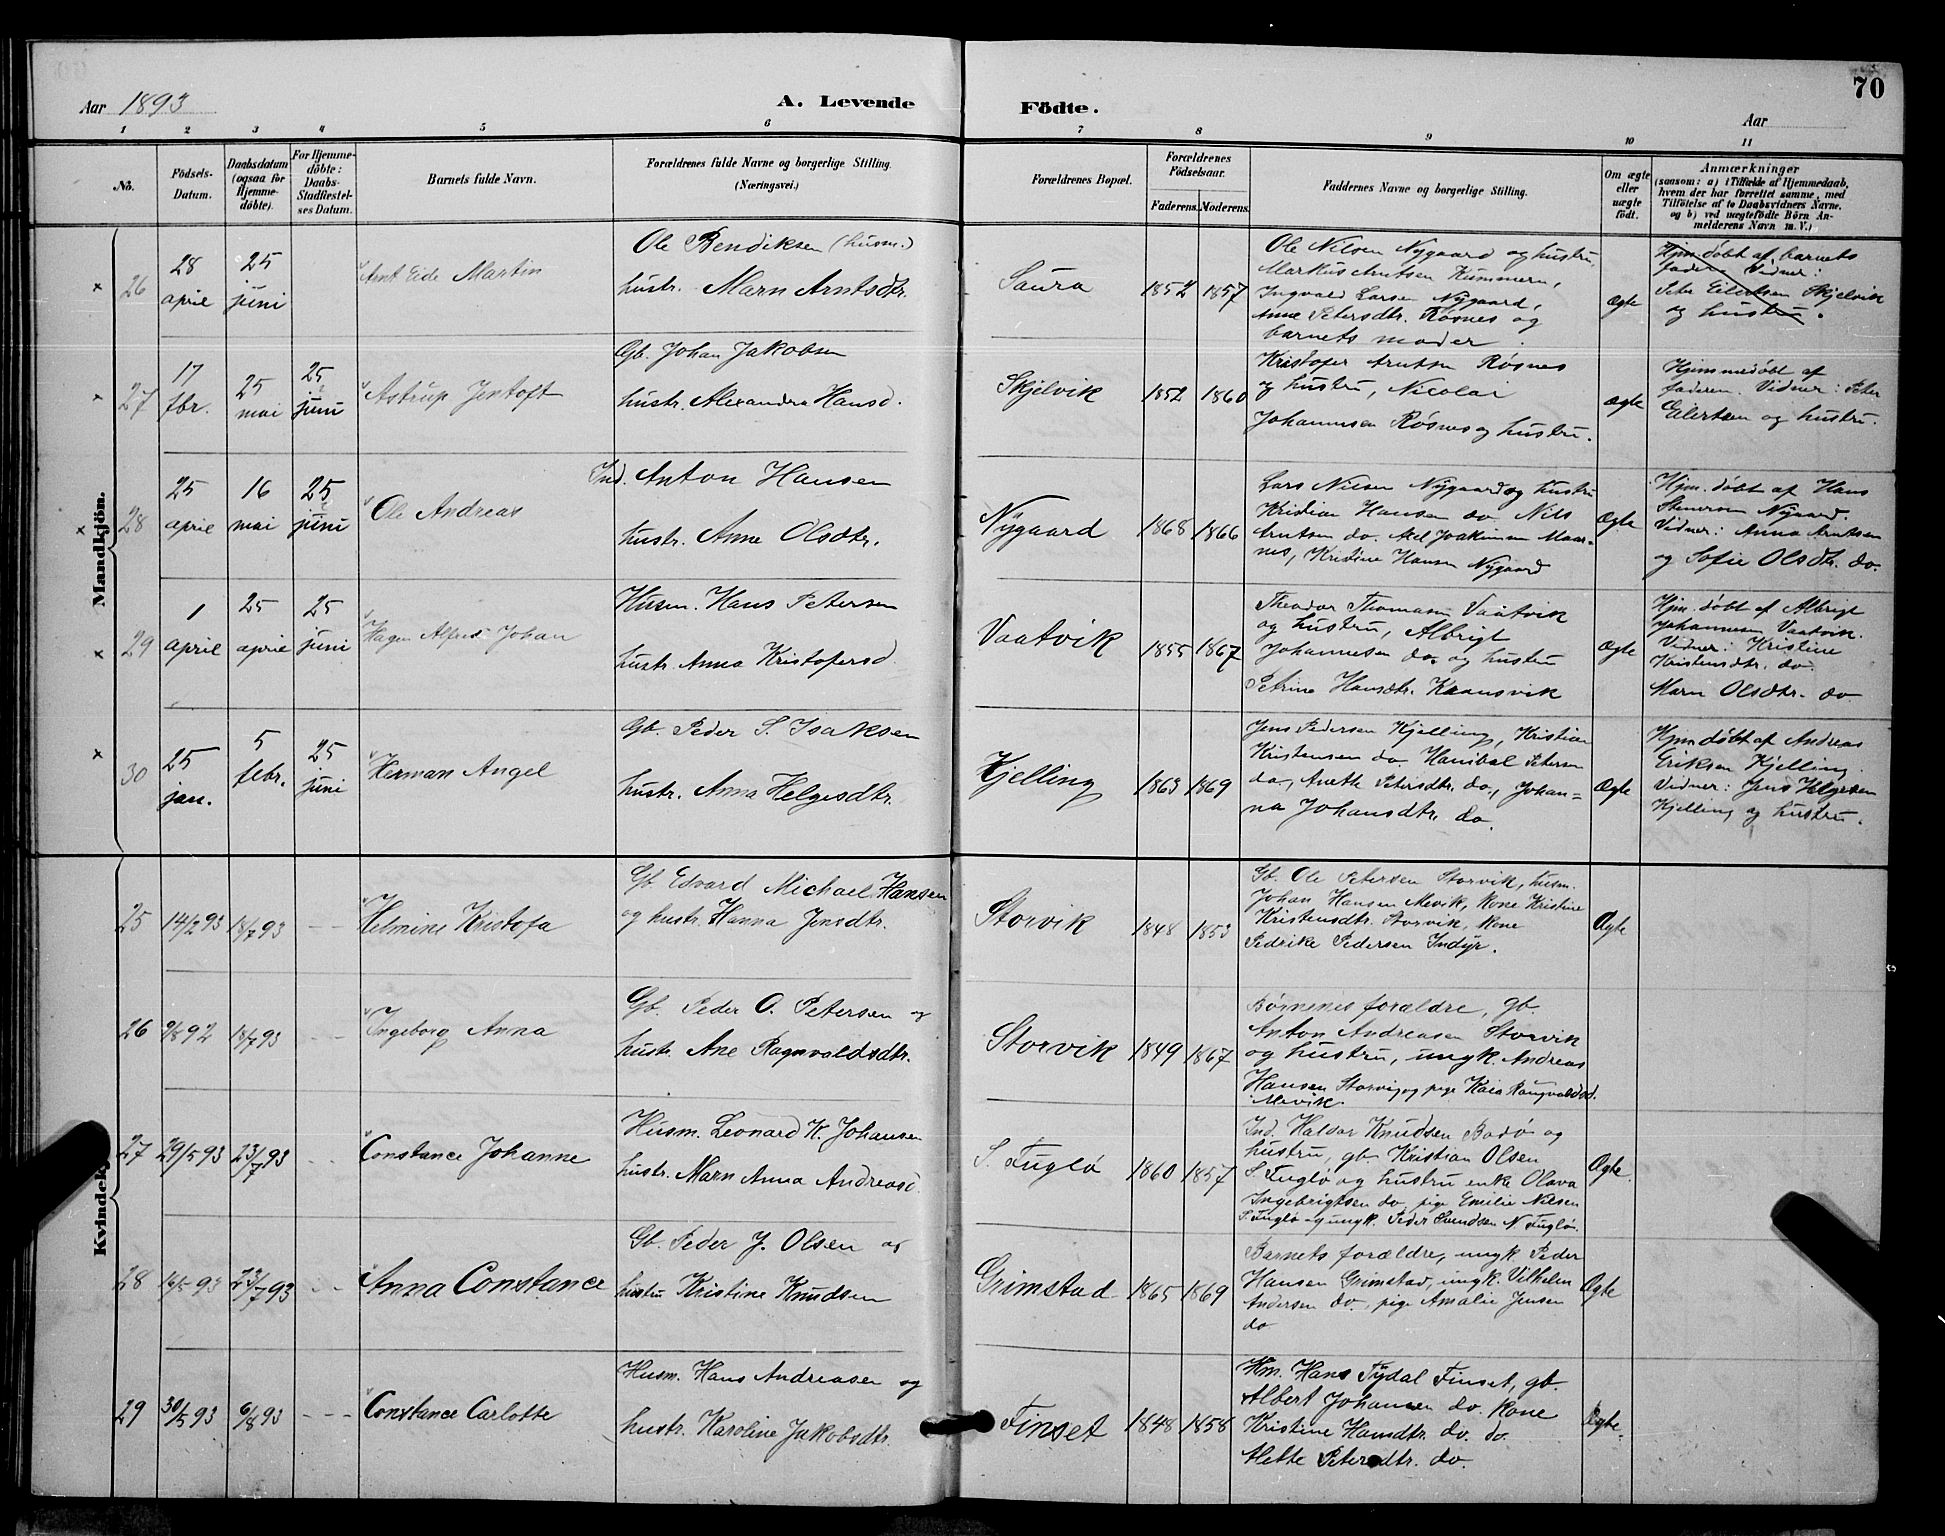 70
Aar 1893
A. Levende
Födte.
Aar
1 2 3 4 5 6 7 8 9 10 11
No.
Födsels-
Datum.
Daabsdatum
(ogsaa for
Hjemme-
döbte).
For Hjemme-
döbte:
Daabs-
Stadfæstel-
ses Datum.
Barnets fulde Navn.
Forældrenes fulde Navne og borgerlige Stilling.
(Næringsvei.)
Forældrenes Bopæl.
Forældrenes
Födselsaar.
Faderens. Moderens.
Faddernes Navne og borgerlige Stilling.
Om ægte
eller
uægte
födt.
Anmærkninger
(saasom: a) i Tilfælde af Hjemmedaab,
hvem der har forrettet samme, med
Tilföielse af to Daabsvidners Navne,
og b) ved uægtefödte Börn An-
melderens Navn m. V.)
Mandkjön.
26
28
april
25
juni
Arnt Eide Martin
Ole Bendiksen (husm.)
hustr. Marn Arntsdtr.
Saura
1852 1857
Ole Nilsen Nygaard og hustru,
Markus Arntsen Kummern,
Ingvald Larsen Nygaard,
Anne Petersdtr. Røsnes og
barnets moder.
ægte
Hjm. døbt af barnets
fader. Vidner:
Peter Eilertsen Skjelvik
og hustru.
27
17
fbr.
25
mai
25
juni
Astrup Jentoft
Gb. Johan Jakobsen
hustr. Alexandra Hansd.
Skjelvik
1852 1860
Kristofer Arntsen Røsnes
og hustru, Nicolai
Johannesen Røsnes og hustru.
ægte
Hjemmedøbt af
faderen. Vidner: Peter
Eilertsen og hustru.
28
25
april
16
mai
25
juni
Ole Andreas
Ind. Anton Hansen
hustr. Anne Olsdtr.
Nygaard
1868 1866
Lars Nilsen Nygaard og hustru
Kristian Hansen do. Nils
Arntsen do. Axel Joakimsen Maar-
nes, Kristine Hansen Nygaard
Ægte
Hjm. døbt af Hans
Nygaard.
Vidner: Anna Arntsen
og Sofie Olsdtr. do.
29
1
april
25
april
25
juni
Hagen Alfred Johan
Husm. Hans Petersen
hustr. Anna Kristofersd.
Vaatvik
1855 1867
Theodor Thomasen Vaatvik
og hustru, Albrigt
Johannesen do. og hustru
Petrine Hansdtr. Kraansvik
Ægte
Hjm. døbt af Albrigt
Johannesen Vaatvik.
Vidner: Kristine
Kristensdtr. do.
Marn Olsdtr. do
30
25
jan.
5
febr.
25
juni
Herman Angel
Gb. Peder S. Isaksen
hustr. Anna Helgesdtr.
Kjelling
1863 1869
Jens Pedersen Kjelling, Kristian
Kristensen do. Hanibal Petersen
do., Aneth Petersdtr. do., Johan=
na Johansdtr. do.
Ægte
Hjm. døbt af Andreas
Eriksen Kjelling.
Vidner: Jens Helgesen
Kjelling og hustru.
Kvindekj
25
14/2 93
18/7 93
Helmine Kristofa
Gb. Edvard Michael Hansen
og hustr. Hanna Jensdtr.
Storvik
1848 1853
Gb. Ole Petersen Storvik, husm.
Johan Hansen Mevik, Kone Kristine
Kristensdtr. Storvik, Kone
Pedrike Pedersen Indyr.
Ægte
26
9/8 92
18/7 93
Ingeborg Anna
Gb. Peder O. Petersen og
hustr. Ane Ragnvaldsdtr.
Storvik
1849 1867
Børnenes forældre, gb.
Anton Andreasen Storvik
og hustru, ungk. Andreas
Hansen Storvig og pige Kaia Rangvaldsd.
Mevik.
27
29/5 93
23/7 93
Constance Johanne
Husm. Leonard K. Johansen
hustr. Marn Anna Andreasd.
S. Fuglø
1860 1857
Ind. Haldor Knudsen Bodø og
hustru, gb. Kristian Olsen
S. Fuglø og hustru enke Olava
Ingebrigtsen do, pige Emilie Nilsen
S. Fuglø og ungk. Peder Svendsen N. Fuglø.
Ægte.
28
16/5 93
23/7 93
Anna Constance
Gb. Peder J. Olsen og
hustru Kristine Knudsen
Grimstad
1865 1869
Barnets forældre, ungk. Peder
Hansen Grimstad, ungk. Vilhelm
Andersen do., pige Amalie Jensen
do
Ægte
29
30/5 93
6/8 93
Constance Carlotte
Husm. Hans Andreasen og
hustr. Karoline Jakobsdtr.
Finset
1848 1858
Hm. Hans Tydal Finset, gb.
Albert Johansen do. Kone
Kristine Hansdtr. do. do.
Mette Petersdtr. do.
Ægte.